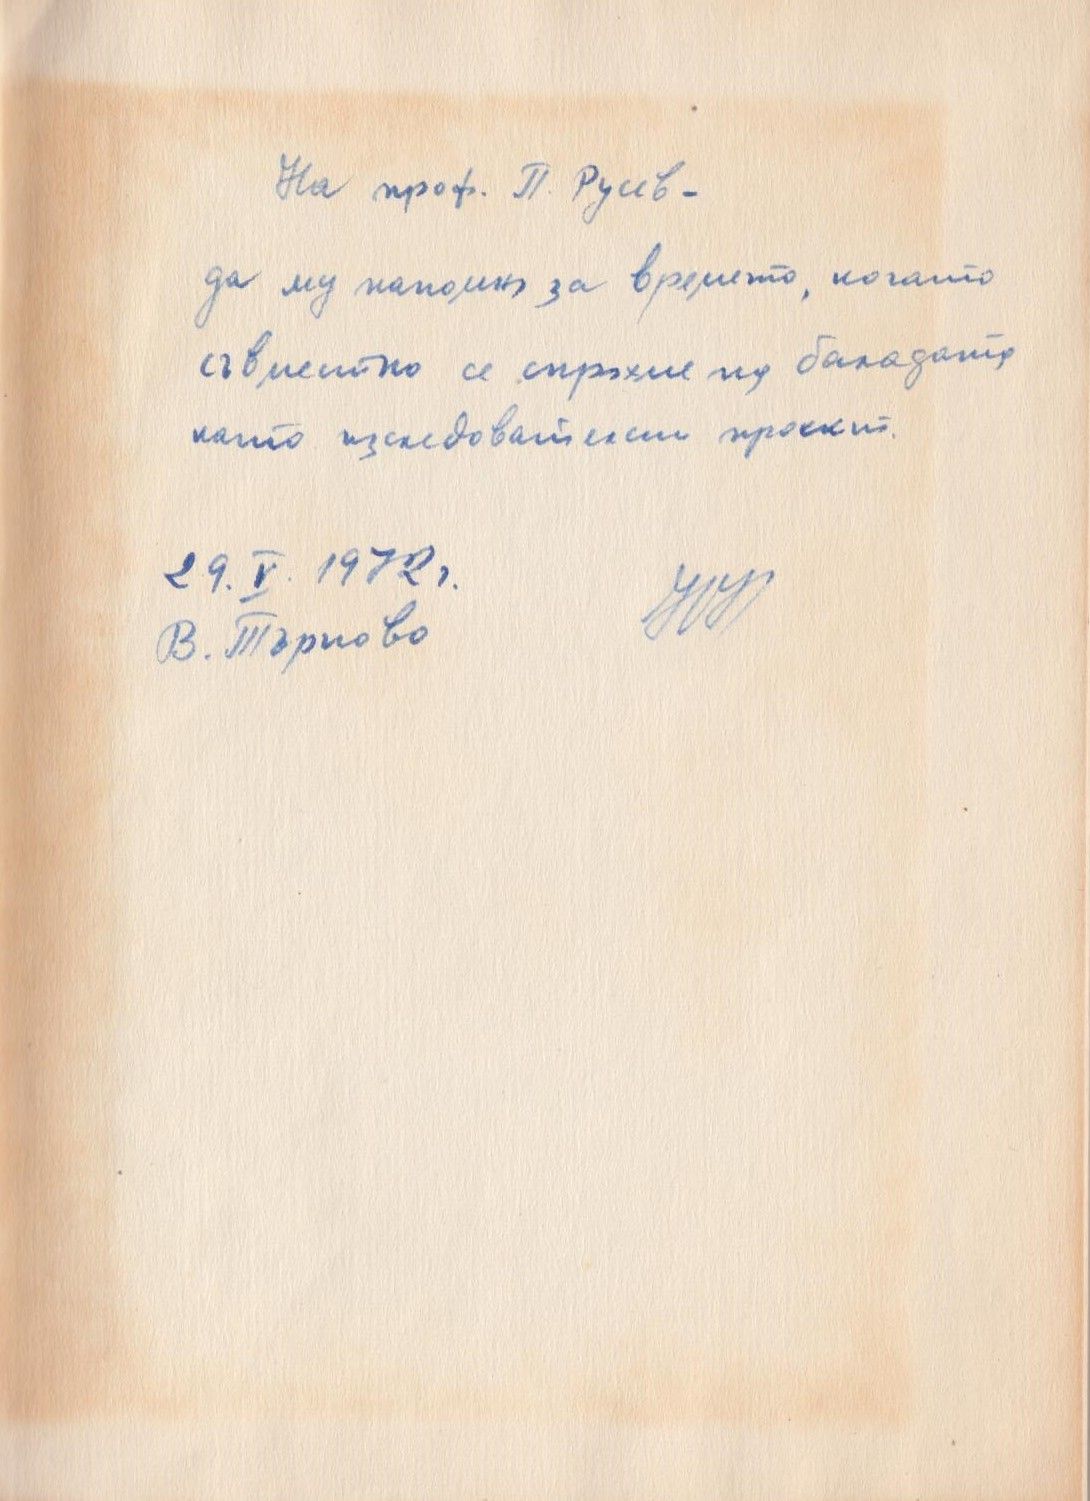 На проф. П. Русев -
да му напомня за времето, когато
съвместно се спряхме на баладата
като изследователски проект.
29. V. 1972 г.
В. Търново